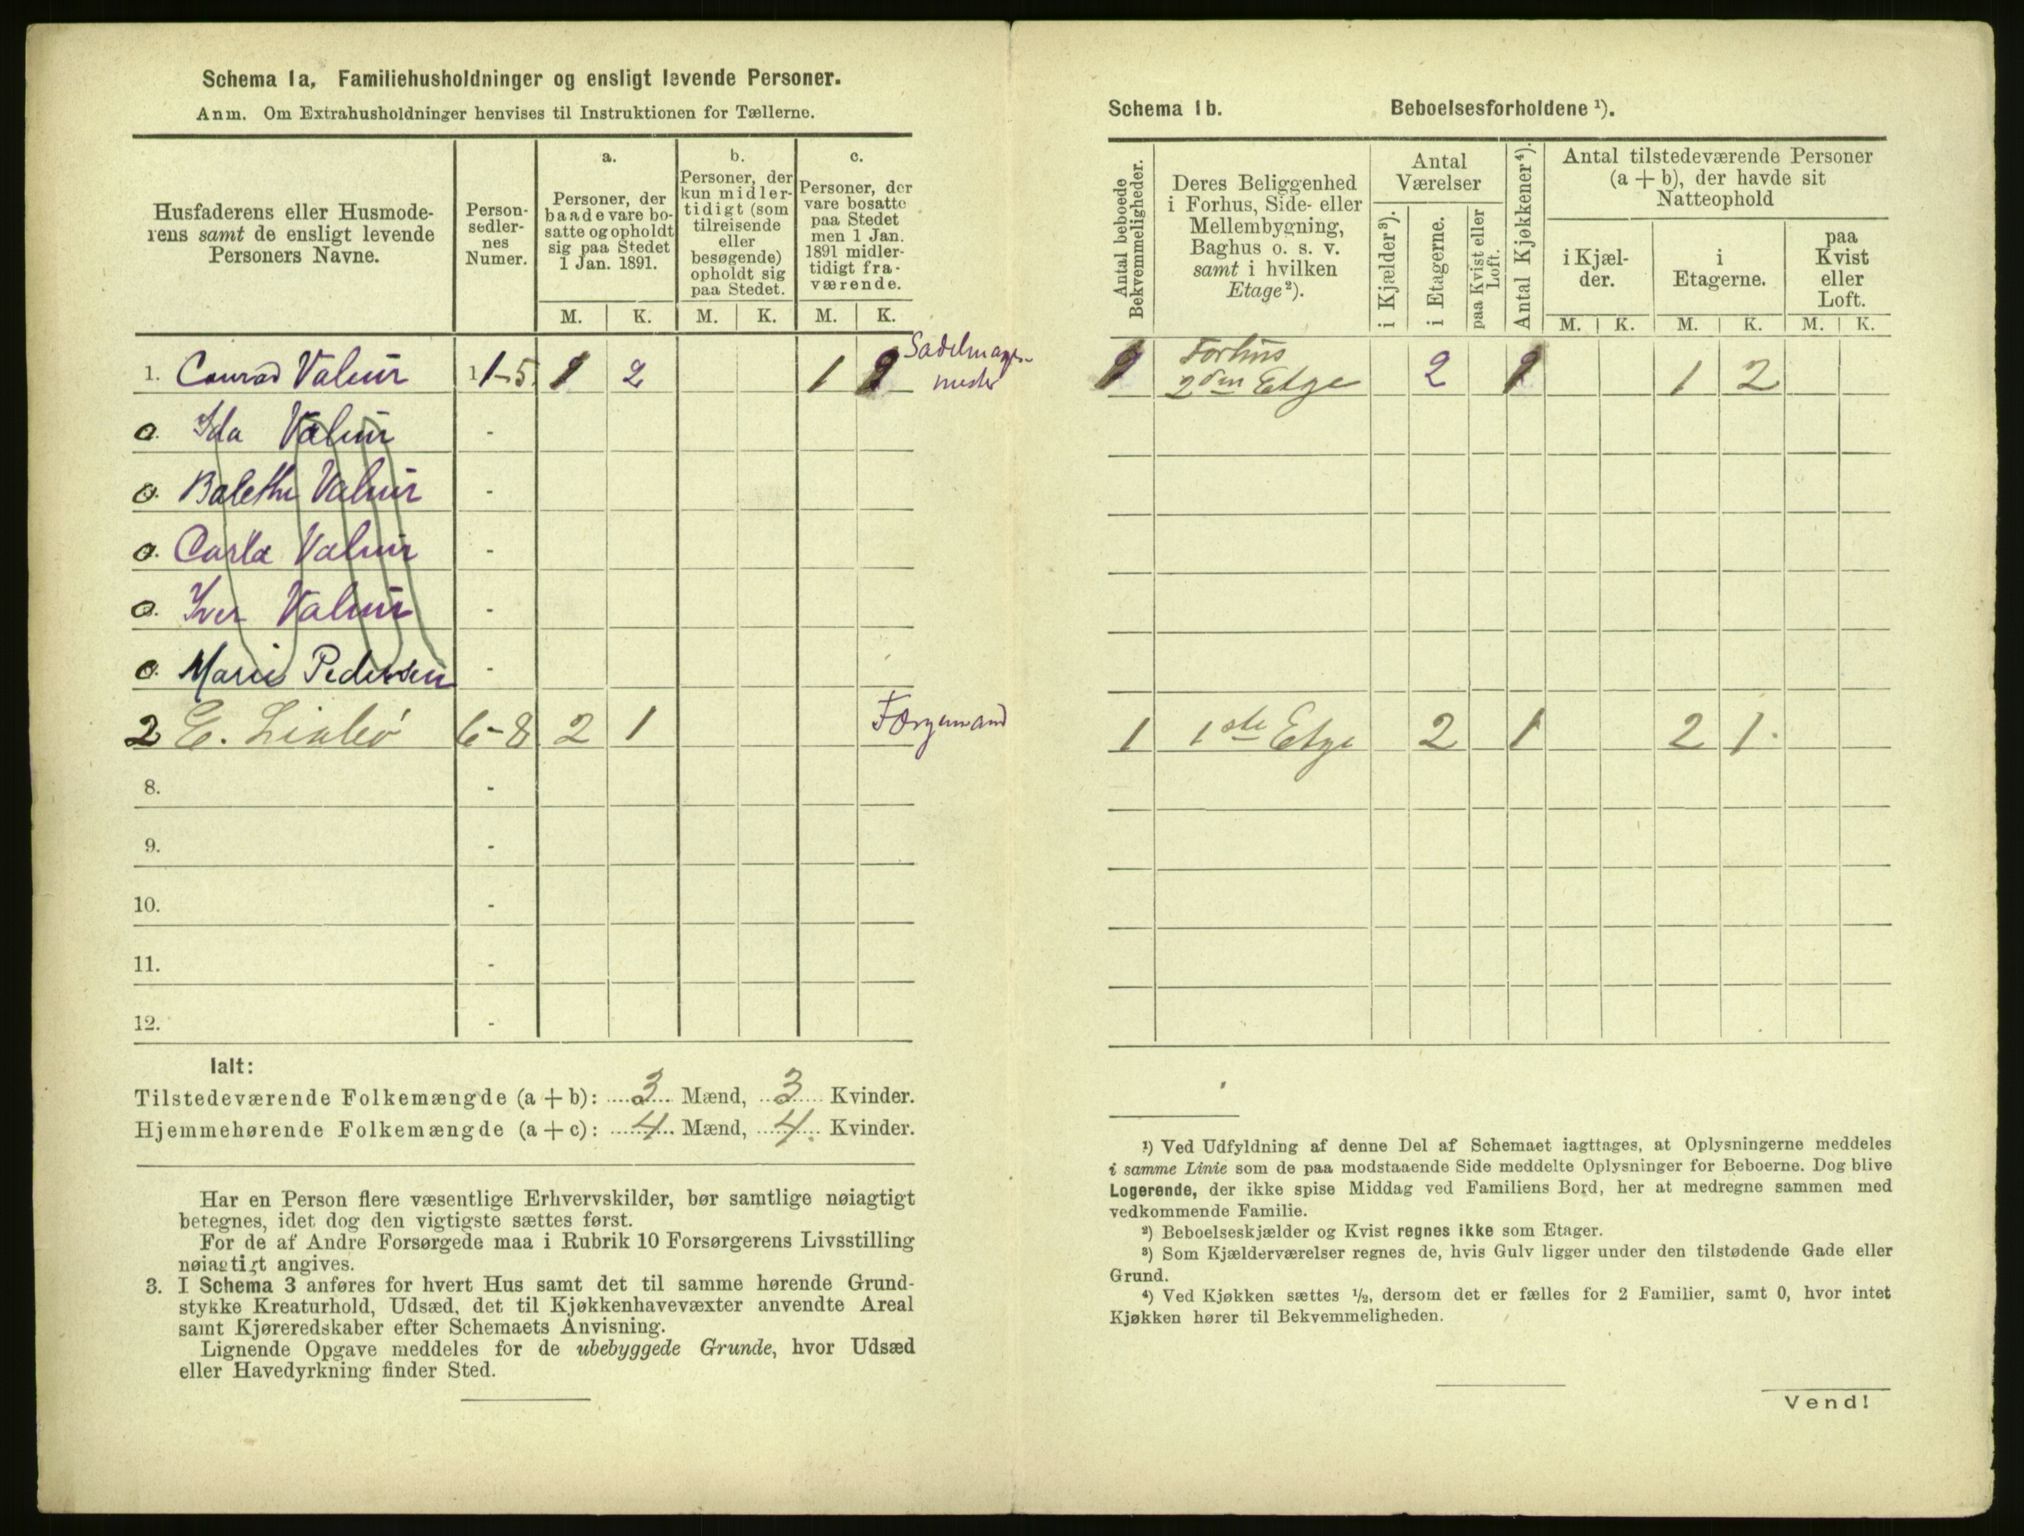 Schema 1a, Familiehusholdninger og ensligt levende Personer.
Anm. Om Extrahusholdninger henvises til Instruktionen for Tællerne.
Husfaderens eller Husmode-
rens samt de ensligt levende
Personers Navne.
Person-
sedler-
nes
Numer.
a.
Personer, der
baade vare bo-
satte og opholdt
sig paa Stedet
1 Jan. 1891.
b.
Personer, der
kun midler-
tidigt (som
tilreisende
eller
besøgende)
opholdt sig
paa Stedet.
c.
Personer, der
vare bosatte
paa Stedet
men 1 Jan.
1891 midler-
tidigt fra-
værende.
M. K. M. K. M. K.
1. Conrad Valeur 1-5 1 2 1 1 Sadelmager-
mester
o. Ida Valeur -
o. Balethe Valeur -
o. Carla Valeur -
o. Iver Valeur -
o. Marie Pedersen -
2 E. Liabø 6-8 2 1 Færgemand
8. -
9. -
10. -
11. -
12. -
Ialt:
Tilstedeværende Folkemængde (a + b): 3 Mænd, 3 Kvinder.
Hjemmehørende Folkemængde (a + c): 4 Mænd, 4. Kvinder.
Har en Person flere væsentlige Erhvervskilder, bør samtlige nøiagtigt
betegnes, idet dog den vigtigste sættes først.
For de af Andre Forsørgede maa i Rubrik 10 Forsørgerens Livsstilling
nøiagtigt angives.
3. I Schema 3 anføres for hvert Hus samt det til samme hørende Grund-
stykke Kreaturhold, Udsæd, det til Kjøkkenhavevæxter anvendte Areal
samt Kjøreredskaber efter Schemaets Anvisning.
Lignende Opgave meddeles for de ubebyggede Grunde, hvor Udsæd
eller Havedyrkning finder Sted.
Schema 1b. Beboelsesforholdene ¹).
Antal beboede
Bekvemmeligheder.
Deres Beliggenhed
i Forhus, Side- eller
Mellembygning,
Baghus o. s. v.
samt i hvilken
Etage²).
Antal
Værelser
i Kjælder³).
i Etagerne.
paa Kvist eller
Loft.
Antal Kjøkkener⁴).
Antal tilstedeværende Personer
(a + b), der havde sit
Natteophold
i Kjæl-
der.
i
Etagerne.
paa
Kvist
eller
Loft.
M. K. M. K. M. K.
1 Forhus
2den Etge 2 1 1 2
1 1ste Etge 2 1 2 1.
¹) Ved Udfyldning af denne Del af Schemaet iagttages, at Oplysningerne meddeles
i samme Linie som de paa modstaaende Side meddelte Oplysninger for Beboerne. Dog blive
Logerende, der ikke spise Middag ved Familiens Bord, her at medregne sammen med
vedkommende Familie.
²) Beboelseskjælder og Kvist regnes ikke som Etager.
³) Som Kjælderværelser regnes de, hvis Gulv ligger under den tilstødende Gade eller
Grund.
⁴) Ved Kjøkken sættes ½, dersom det er fælles for 2 Familier, samt 0, hvor intet
Kjøkken hører til Bekvemmeligheden.
Vend!